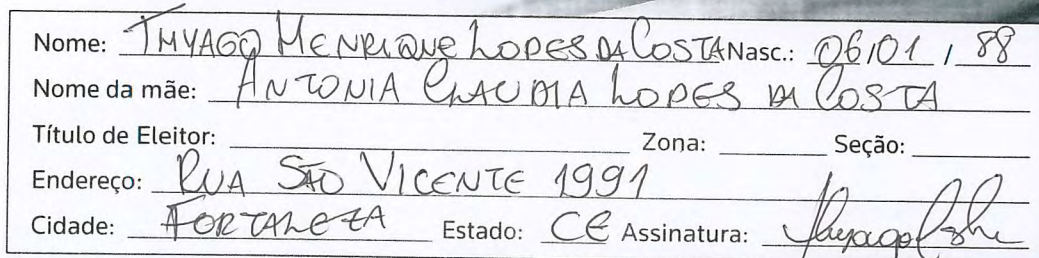 Nome: THYAGO HENRIQUE LOPES DA COSTA Nasc.: 06/01/88
Nome da mãe: ANTONIA CLAUDIA LOPES DA COSTA
Título de Eleitor: Zona: Seção:
Endereço: RUA SÃO VICENTE 1991
Cidade: FORTALEZA Estado: CE Assinatura: Thyago